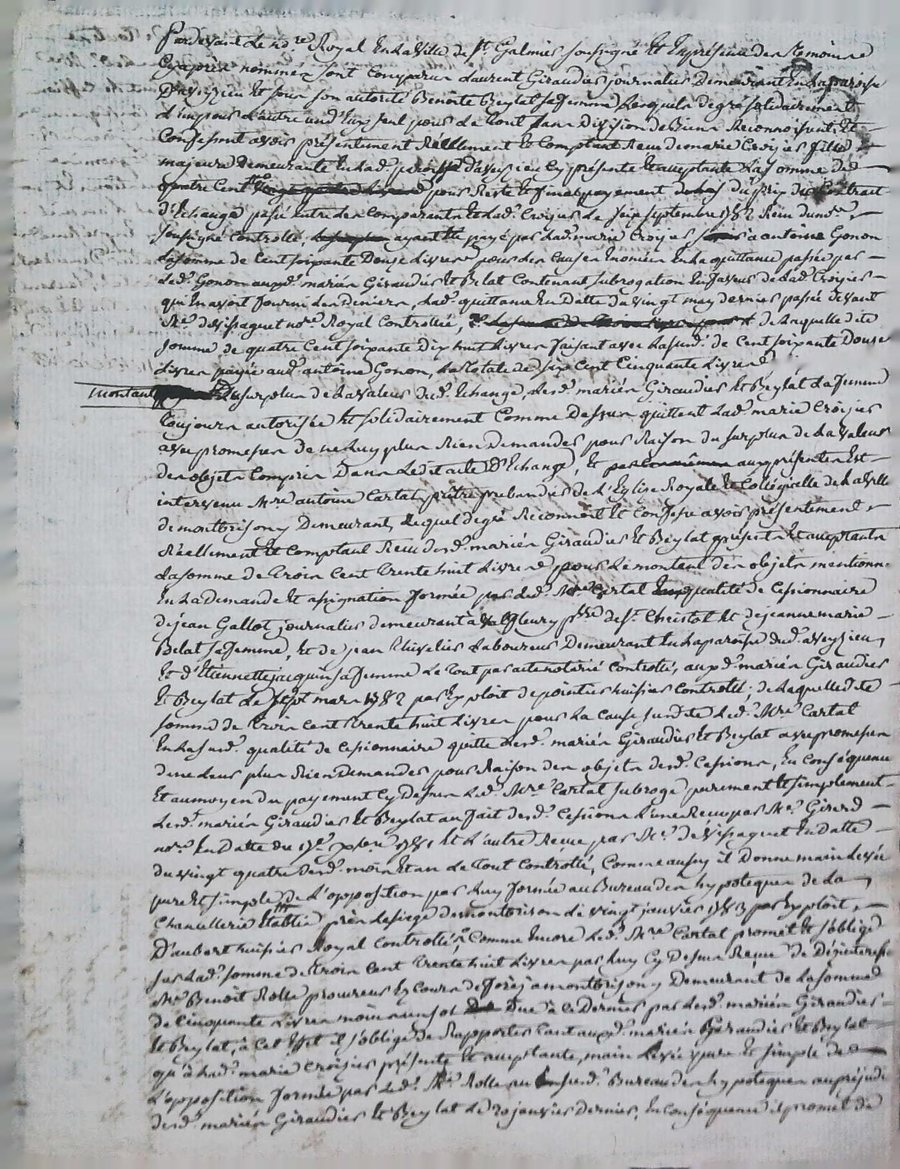 Pardevant Le no.re Royal En La ville de St Galmier soussigné Et En présence des Temoins
Cy après nommés sont Comparus Laurent Giraudier journalier Demeurant En La paroisse
D'aveyzieu Et sous son autorité Benoite Beylat sa femme Lesquels de gré solidairement
L'un pour L'autre un d'Eux seul pour Le Tout sans Division de Biens Reconnoissent Et
Confessent avoir présentement Réellement Et Comptant Receu de marie Croizier fille
majeure Demeurante En Lad. paroisse d'aveyzieu Cy présente Et acceptante La somme de
quatre Cent pour Reste Et final payement du prix du Contrat
D'Echange passé Entre Les Comparants Et Lad. Croizier Le Septembre 1782 Reçu du no.re
soussigné Controllé, ayant Eté payé par Lad. marie Croizier à antoine Gonon
La somme de Cent soixante Douze Livres pour Les Causes Enoncées En La quittance passée par
Led. Gonon auxd. mariés Giraudier Et Belat Contenant subrogation En faveur de Lad. Croizier
qui En avoit fourni Les Deniers, Lad. quittance En Datte du vingt may dernier passée devant
Me. de Vissaguet no.re Royal Controllée, de Laquelle dite
somme de quatre Cent soixante Dix huit Livres faisant avec La susd. de Cent soixante Douze
Livres payée aud. antoine Gonon, La Totale de six Cent Cinquante Livres
montant Du surplus de La valeur dud. Echange, Lesd. mariés Giraudier Et Beylat La femme
Toujours autorisée Et solidairement Comme Dessus quittent Lad. marie Croizier
avec promesse de ne Luy plus Rien Demander pour Raison du surplus de La valeur
des objets Compris Dans Ledit acte D'Echange, Et aux présentes Est
intervenu M.re antoine Cartal prêtre prebandier de L'Eglise Royalle Et Collégialle de La ville
de montbrison y Demeurant, Lequel de gré Reconnoit Et Confesse avoir présentement
Réellement Et Comptant Receu desd. mariés Giraudier Et Beylat présents Et acceptants
La somme de Trois Cent Trente huit Livres pour Le montant des objets mentionnés
En La demande Et assignation formée par Led. M.re Cartal En qualité de Cessionnaire
de jean Gallot journalier demeurant à psse de St. Christol Et de jeanne marie
Belat sa femme, Et de jean Chivalier Laboureur Demeurant En La paroisse dud. aveyzieu,
Et d'Etiennette jacquin sa femme Le Tout par acte notarié Controllé, auxd. mariés Giraudier
Et Beylat Le sept mars 1782 par Exploit de pointier huissier Controllé; de Laquelle dite
somme de Trois Cent Trente huit Livres pour La Cause susdite Led. M.re Cartal
En La susd. qualité de Cessionnaire quitte Lesd. mariés Giraudier Et Beylat avec promesse
de ne Leur plus Rien Demander pour Raison des objets desd. Cessions, En Conséquence
Et au moyen du payement Cy Dessus Led. M.re Cartal subroge purement Et simplement
Lesd. mariés Giraudier Et Beylat au fait desd. Cessions L'une Reçue par Me. Girerd
no.re En Datte du 1781 Et L'autre Reçue par Me. de Vissaguet En Datte
du vingt quatre desd. mois Et an Le Tout Controllé, Comme aussy il Donne main Levée
pure Et simple de L'opposition par Luy formée au Bureau des hypoteques de La
Chancellerie Etablie près Le siège de montbrison Le vingt janvier 1783 par Exploit
D'aubert huissier Royal Controllé, Comme Encore Led. M.re Cartal promet Et s'oblige
sur Lad. somme de Trois Cent Trente huit Livres par Luy Cy Dessus Reçue de Désintéresser
Me. Benoit Rolle procureur Es Cours de forez a montbrison y Demeurant de La somme
de Cinquante Livres neuf sols Due à Ce Dernier par Lesd. mariés Giraudier
Et Beylat, à Cet Effet il s'oblige de Rapporter Tant auxd. mariés Giraudier Et Beylat
qu'à Lad. marie Croizier présente Et acceptante, main Levée pure Et simple de
L'opposition formée par Led. Me. Rolle au susd. Bureau des hypoteques au préjudice
desd. mariés Giraudier Et Beylat Le 20 janvier Dernier, En Conséquence il promet de